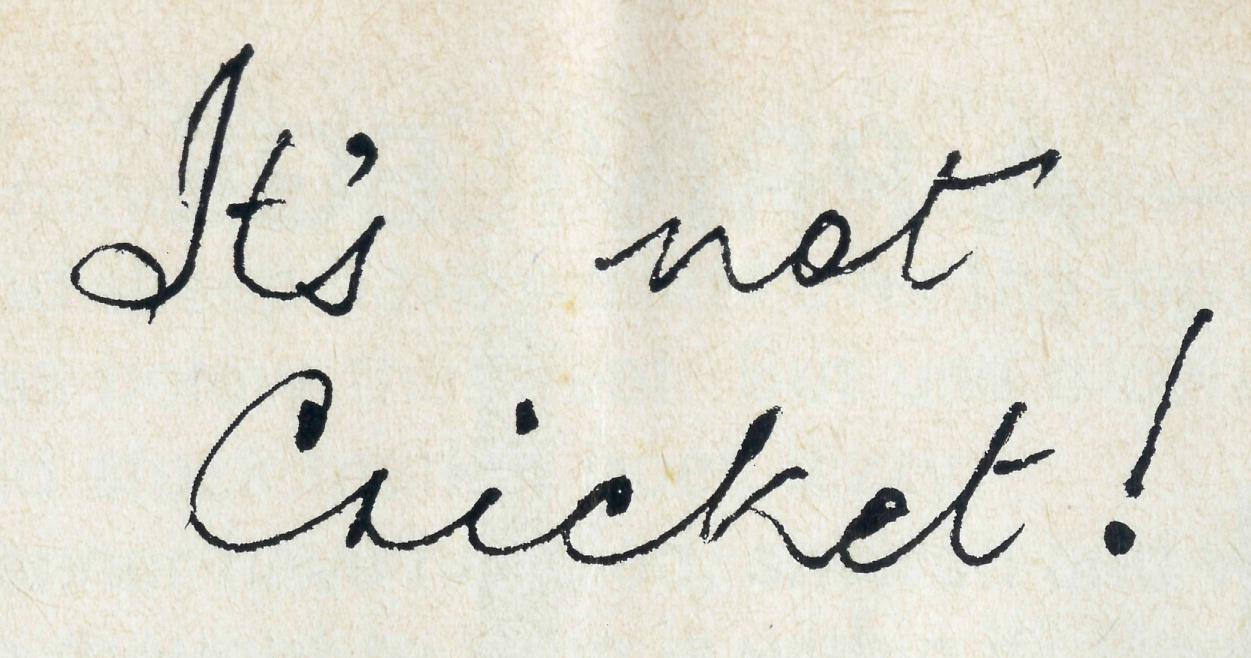 It's not
Cricket!